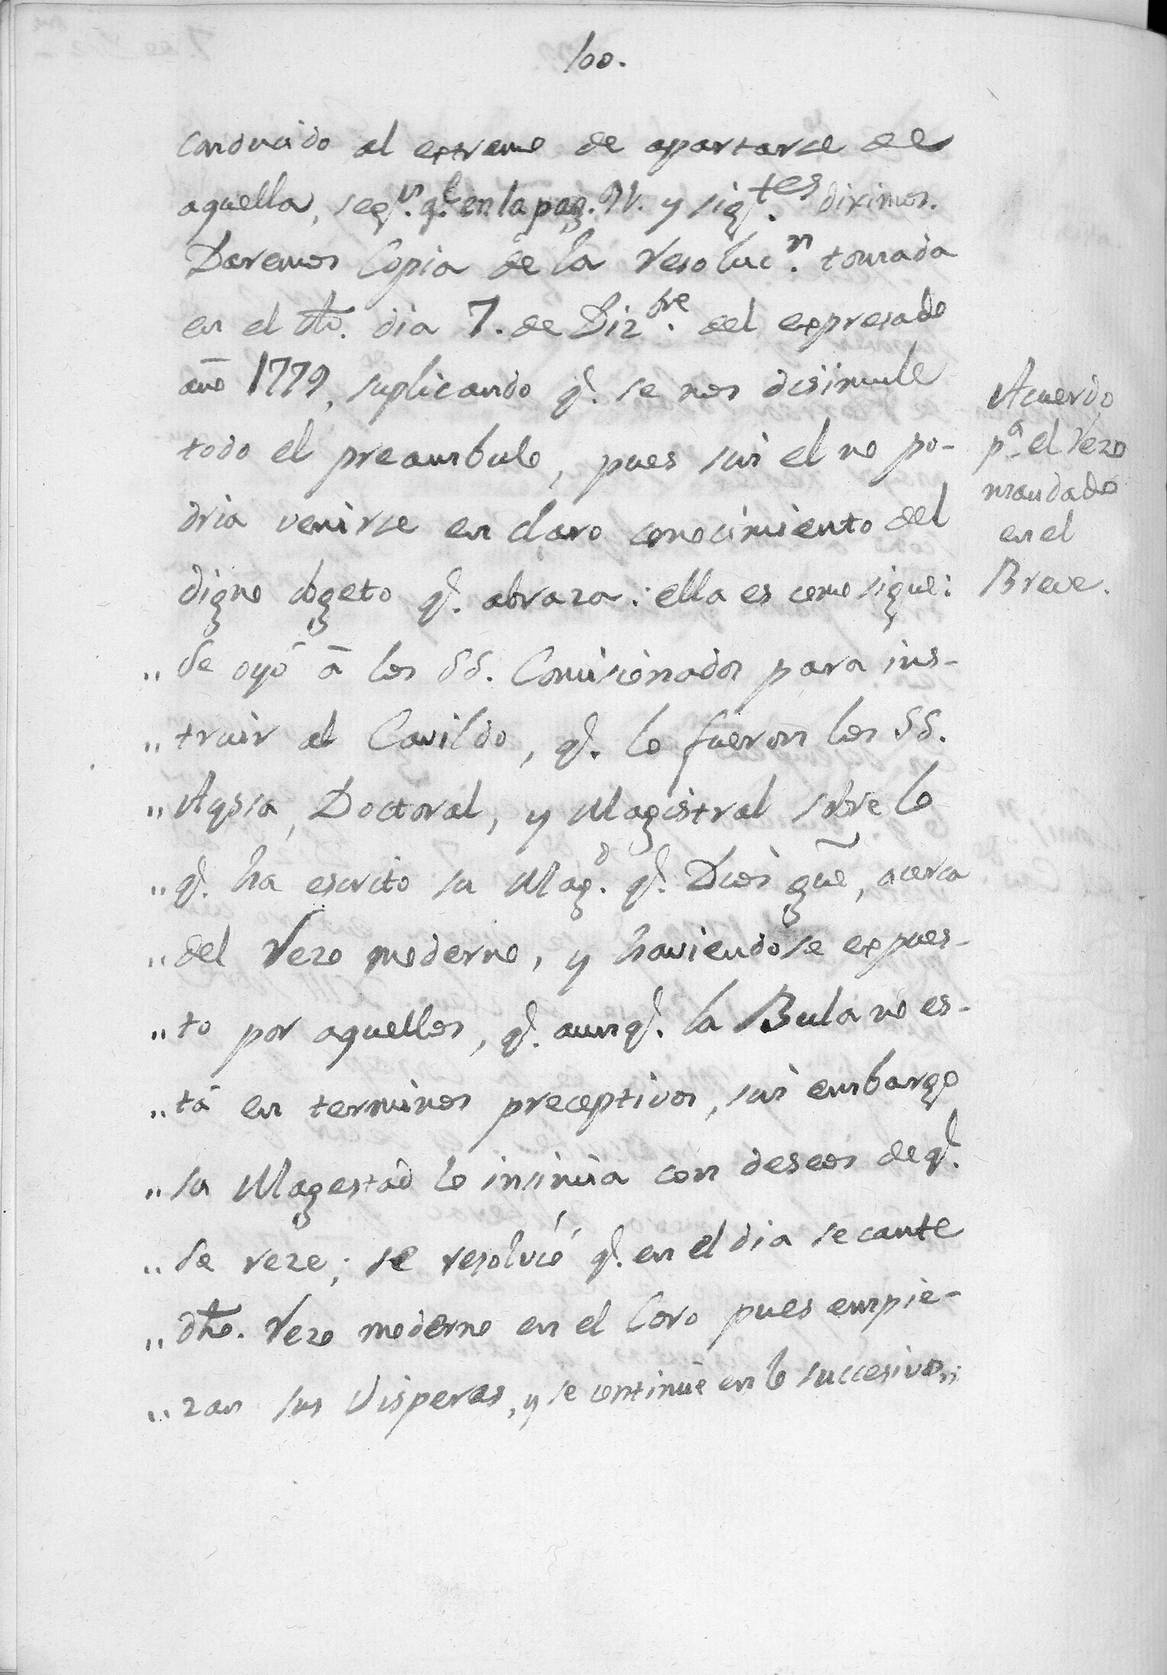 100.
conducido al extremo de apartarse de
aquella, seg.ⁿ q.ᵉ en la pag. 91. y sig.ᵗᵉˢ dixímos.
Daremos Copia de la resoluc.ⁿ tomada
en el dho. dia 7. de Diz.ᵇʳᵉ del expresado
año 1779, suplicando q. se nos disimule
todo el preambulo, pues sin el no po-
dria venirse en claro conocimiento del
digno obgeto q. abraza: ella es como sigue:
Acuerdo
pᵃ el rezo
mandado
en el
Breve.
„ Se oyó á los SS. Comisionados para ins-
„ truir al Cavildo, q. lo fueron los SS.
„ Aqsia, Doctoral, y Magistral sobre lo
„ q. ha escrito su Mag.ᵈ q. Dios gũe, acerca
„ del rezo moderno, y haviendose expues-
„ to por aquellos, q. aunq. la Bula no es-
„ tá en terminos preceptivos, sin embargo
„ su Magestad lo insinúa con deseos de q.
„ se reze; se resolvió q. en el dia se cante
„ dho. rezo moderno en el Coro pues empie-
„ zan sus Visperas, y se continúe en lo succesivo„: